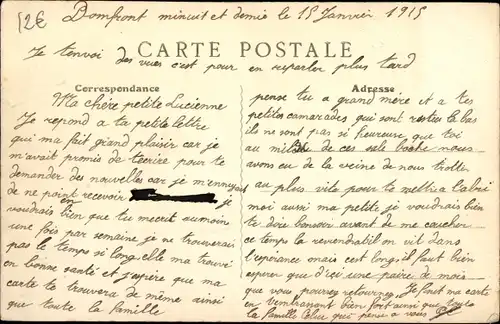 2€
Domfront minuit et demie le 15 Janvier 1915
Je tenvoi des vues c'est pour en reparler plus tard
CARTE POSTALE
Correspondance
Adresse
Ma chère petite Lucienne
Je repond a ta petite lettre
qui ma fait grand plaisir car je
m'avait promis de t'ecrire pour te
demander des nouvelles car je m'ennuyait
de ne point recevoir je
voudrais bien que tu mecrit au moin
une fois par semaine je ne trouverais
pas le temps si long elle ma trouvé
en bonne santé et j'espère que ma
carte te trouvera de même ainsi
que toute la famille
pense tu a grand mère et a tes
petites camarades qui sont restée la bas
ils ne sont pas si heureuse que toi
au milieu de ces sale boche nous
avons eu de la veine de nous trotter
au plus vite pour te mettre a l'abri
moi aussi ma petite je voudrais bien
te dire bonsoir avant de me coucher
ce temps la reviendra t'il on vit dans
l'esperance mais cest long il faut bien
esperer que d'ici une paire de mois
que vous pourrez retourner Je finit ma carte
en t'embrassant bien fort ainsi que toute
la famille que pense a vous